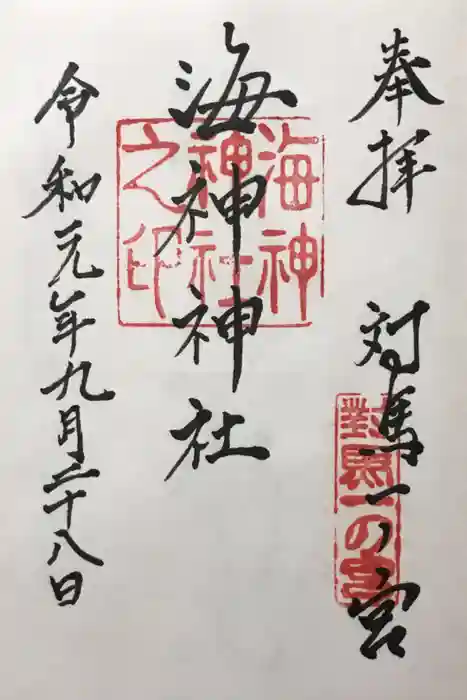 奉拝
対馬一ノ宮
對馬一の宮
海神神社
海神
神社
之印
令和元年九月二十八日